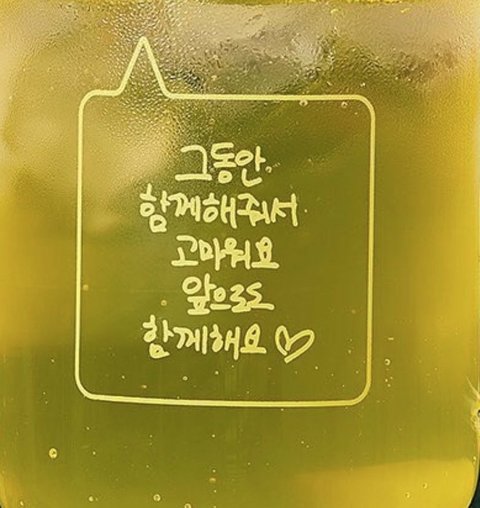 그동안
함께해줘서
고마워요
앞으로도
함께해요 ♡